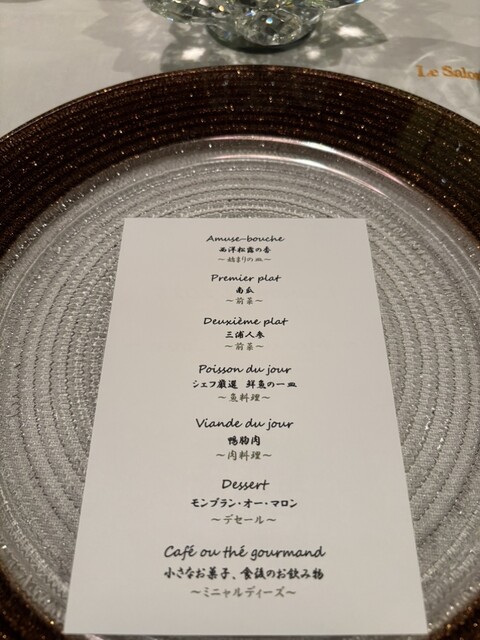 Le Salon
Amuse-bouche
西洋松露の香
～始まりの皿～
Premier plat
南瓜
～前菜～
Deuxième plat
三浦人参
～前菜～
Poisson du jour
シェフ厳選 鮮魚の一皿
～魚料理～
Viande du jour
鴨胸肉
～肉料理～
Dessert
モンブラン・オー・マロン
～デセール～
Café ou thé gourmand
小さなお菓子、食後のお飲み物
～ミニャルディーズ～